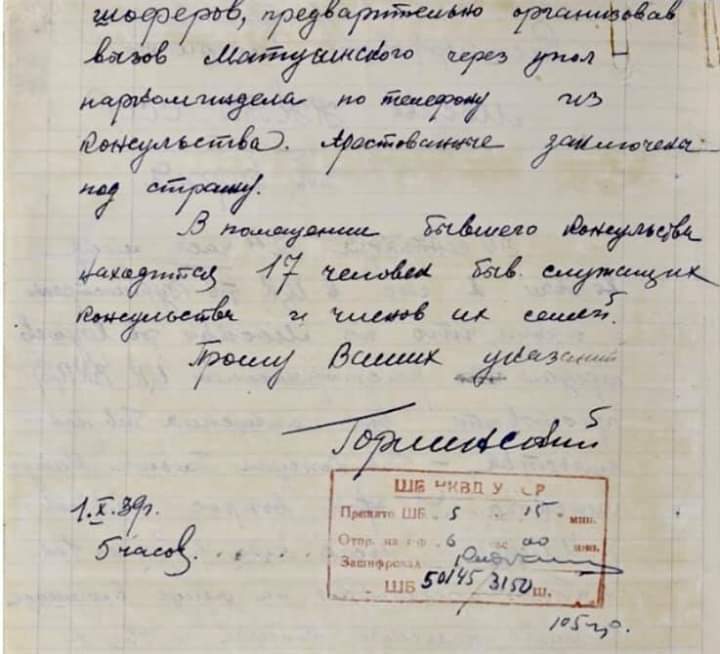 шоферов, предварительно организовав
вызов Матусинского через упол
наркоминдела по телефону из
Консульства. Арестованные заключены
под стражу.
В помещении бывшего Консульства
находится 17 человек быв. служащих
Консульства и членов их семей.
Прошу Ваших указаний
Горлинский
1.X.39г.
5 часов.
ШБ НКВД У СР
Принято ШБ. 5 15 мин.
Отпр. на 6 ас 00 мин.
Зашифровал
ШБ 50145/3150 ш.